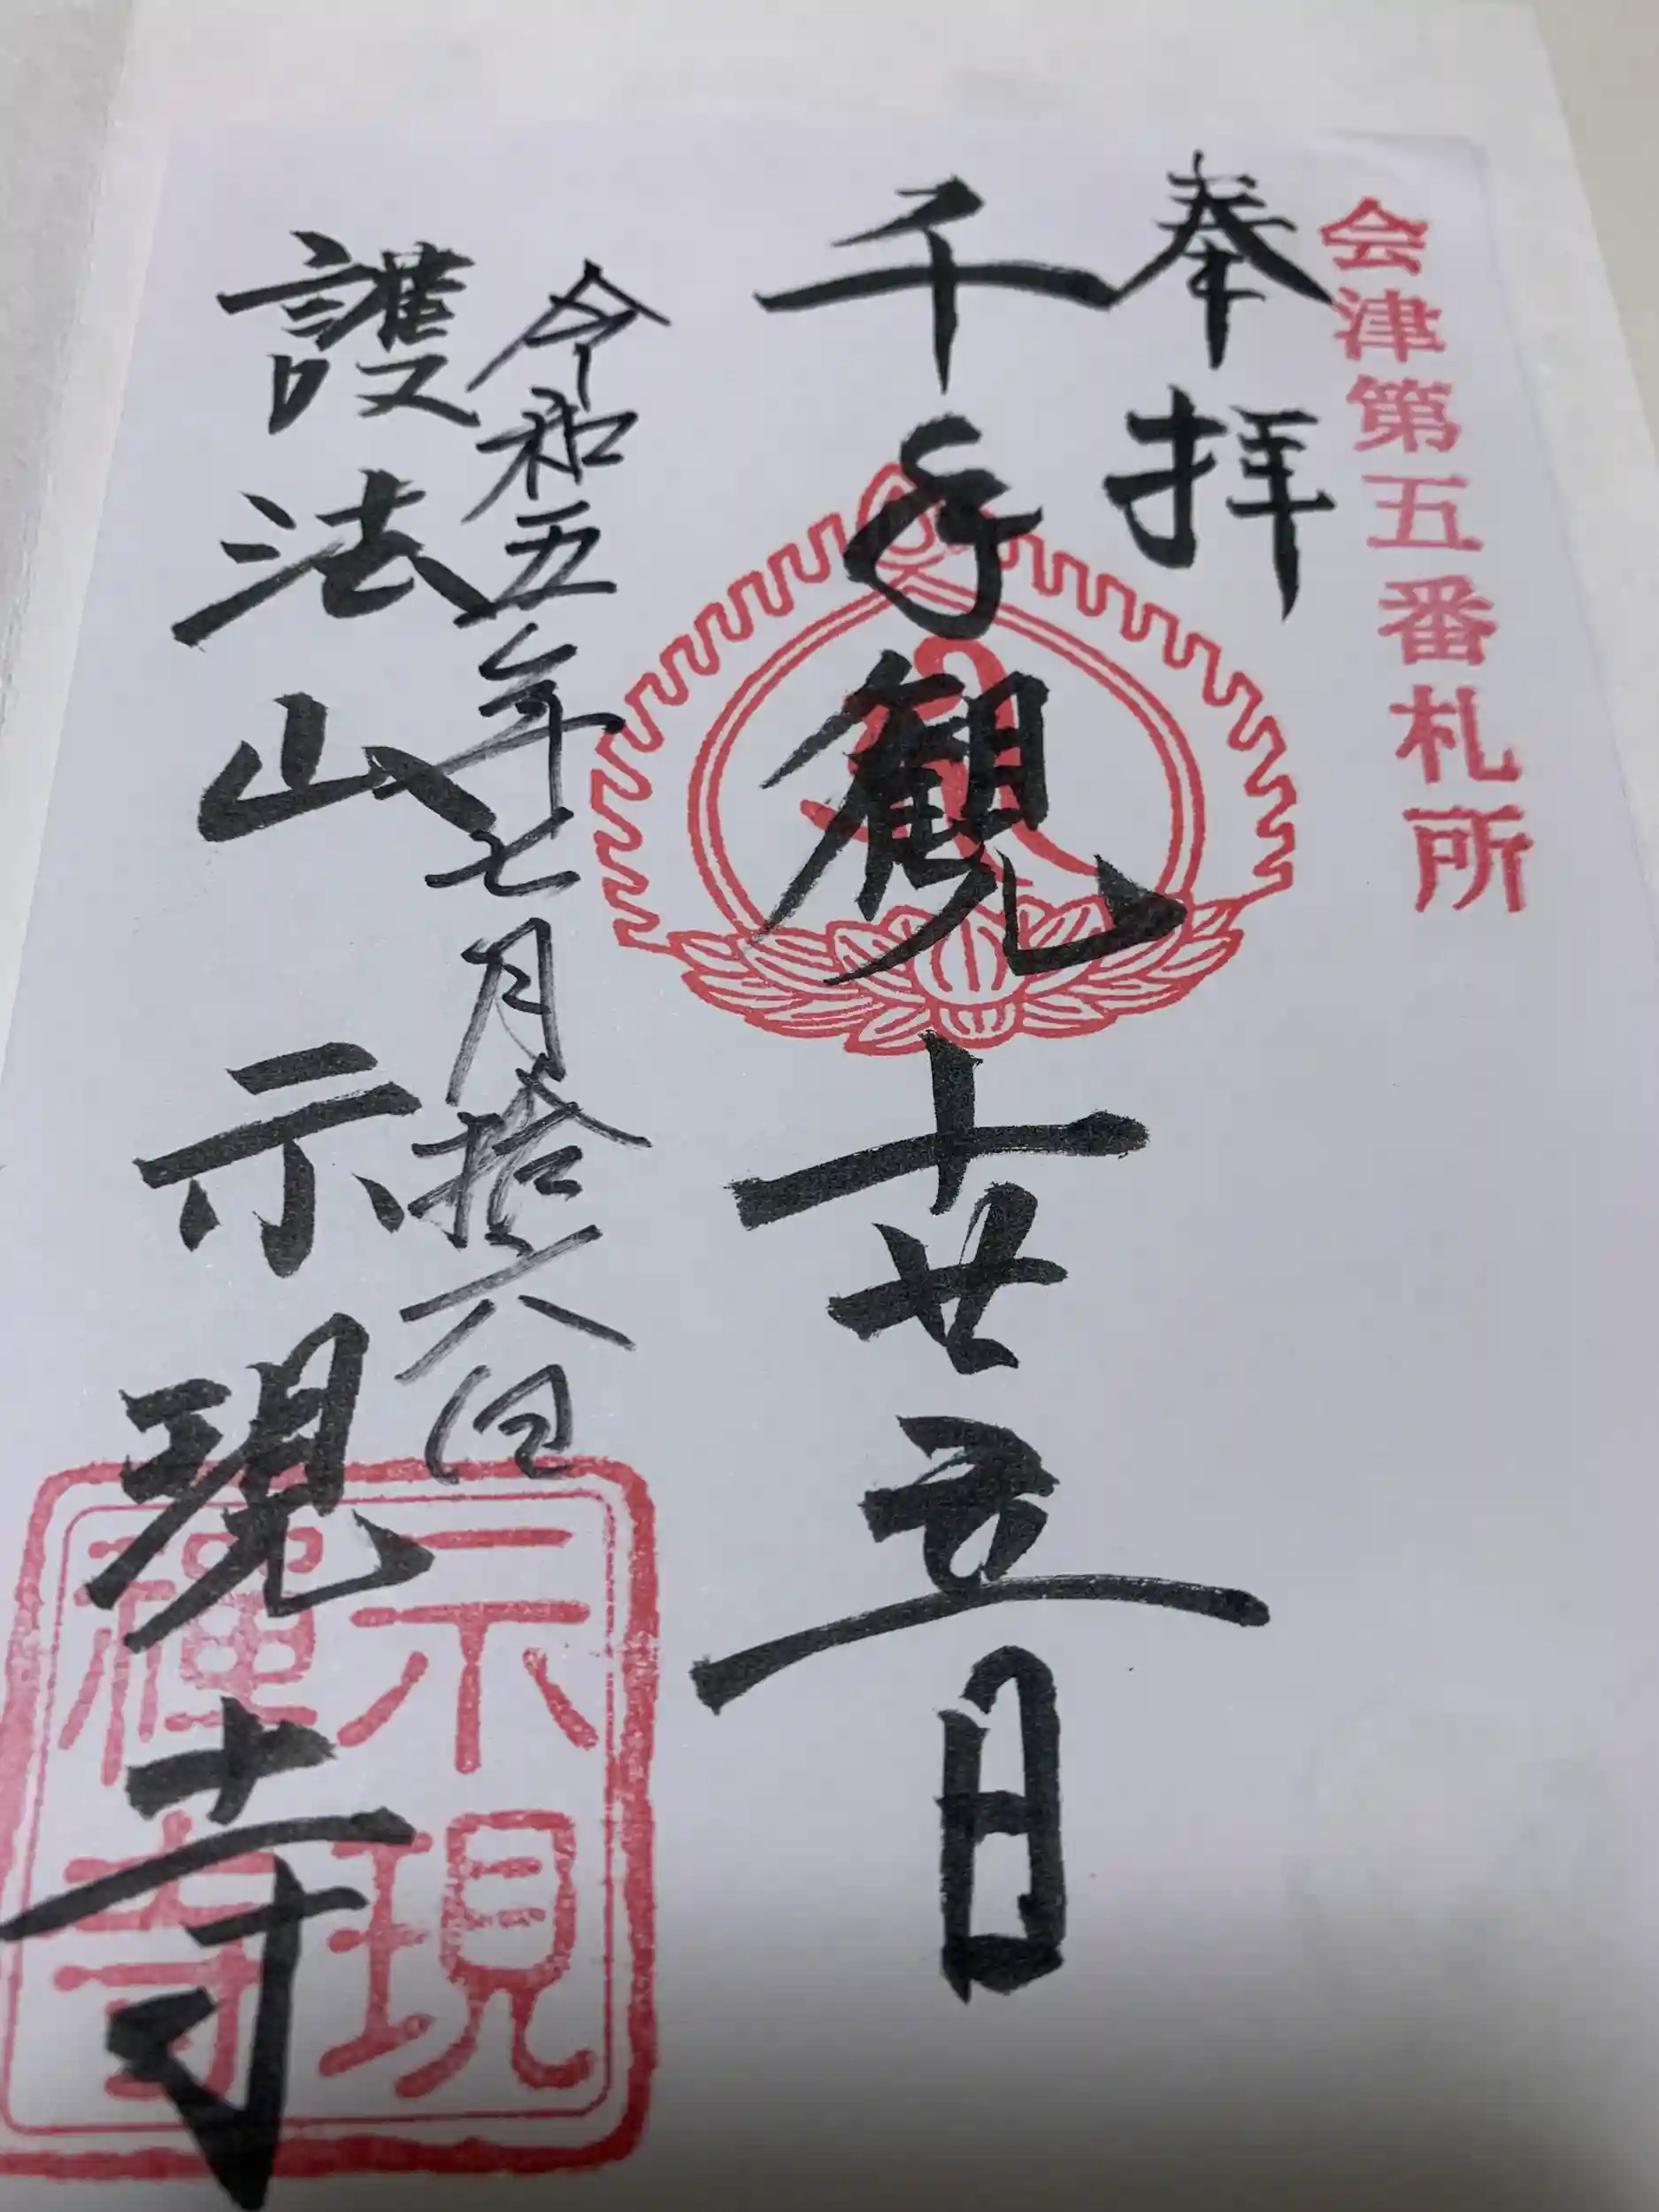 会津第五番札所
奉拝
千手観 十廿五日
令和五年七月拾六日
護法山 示現寺
示現
禅寺